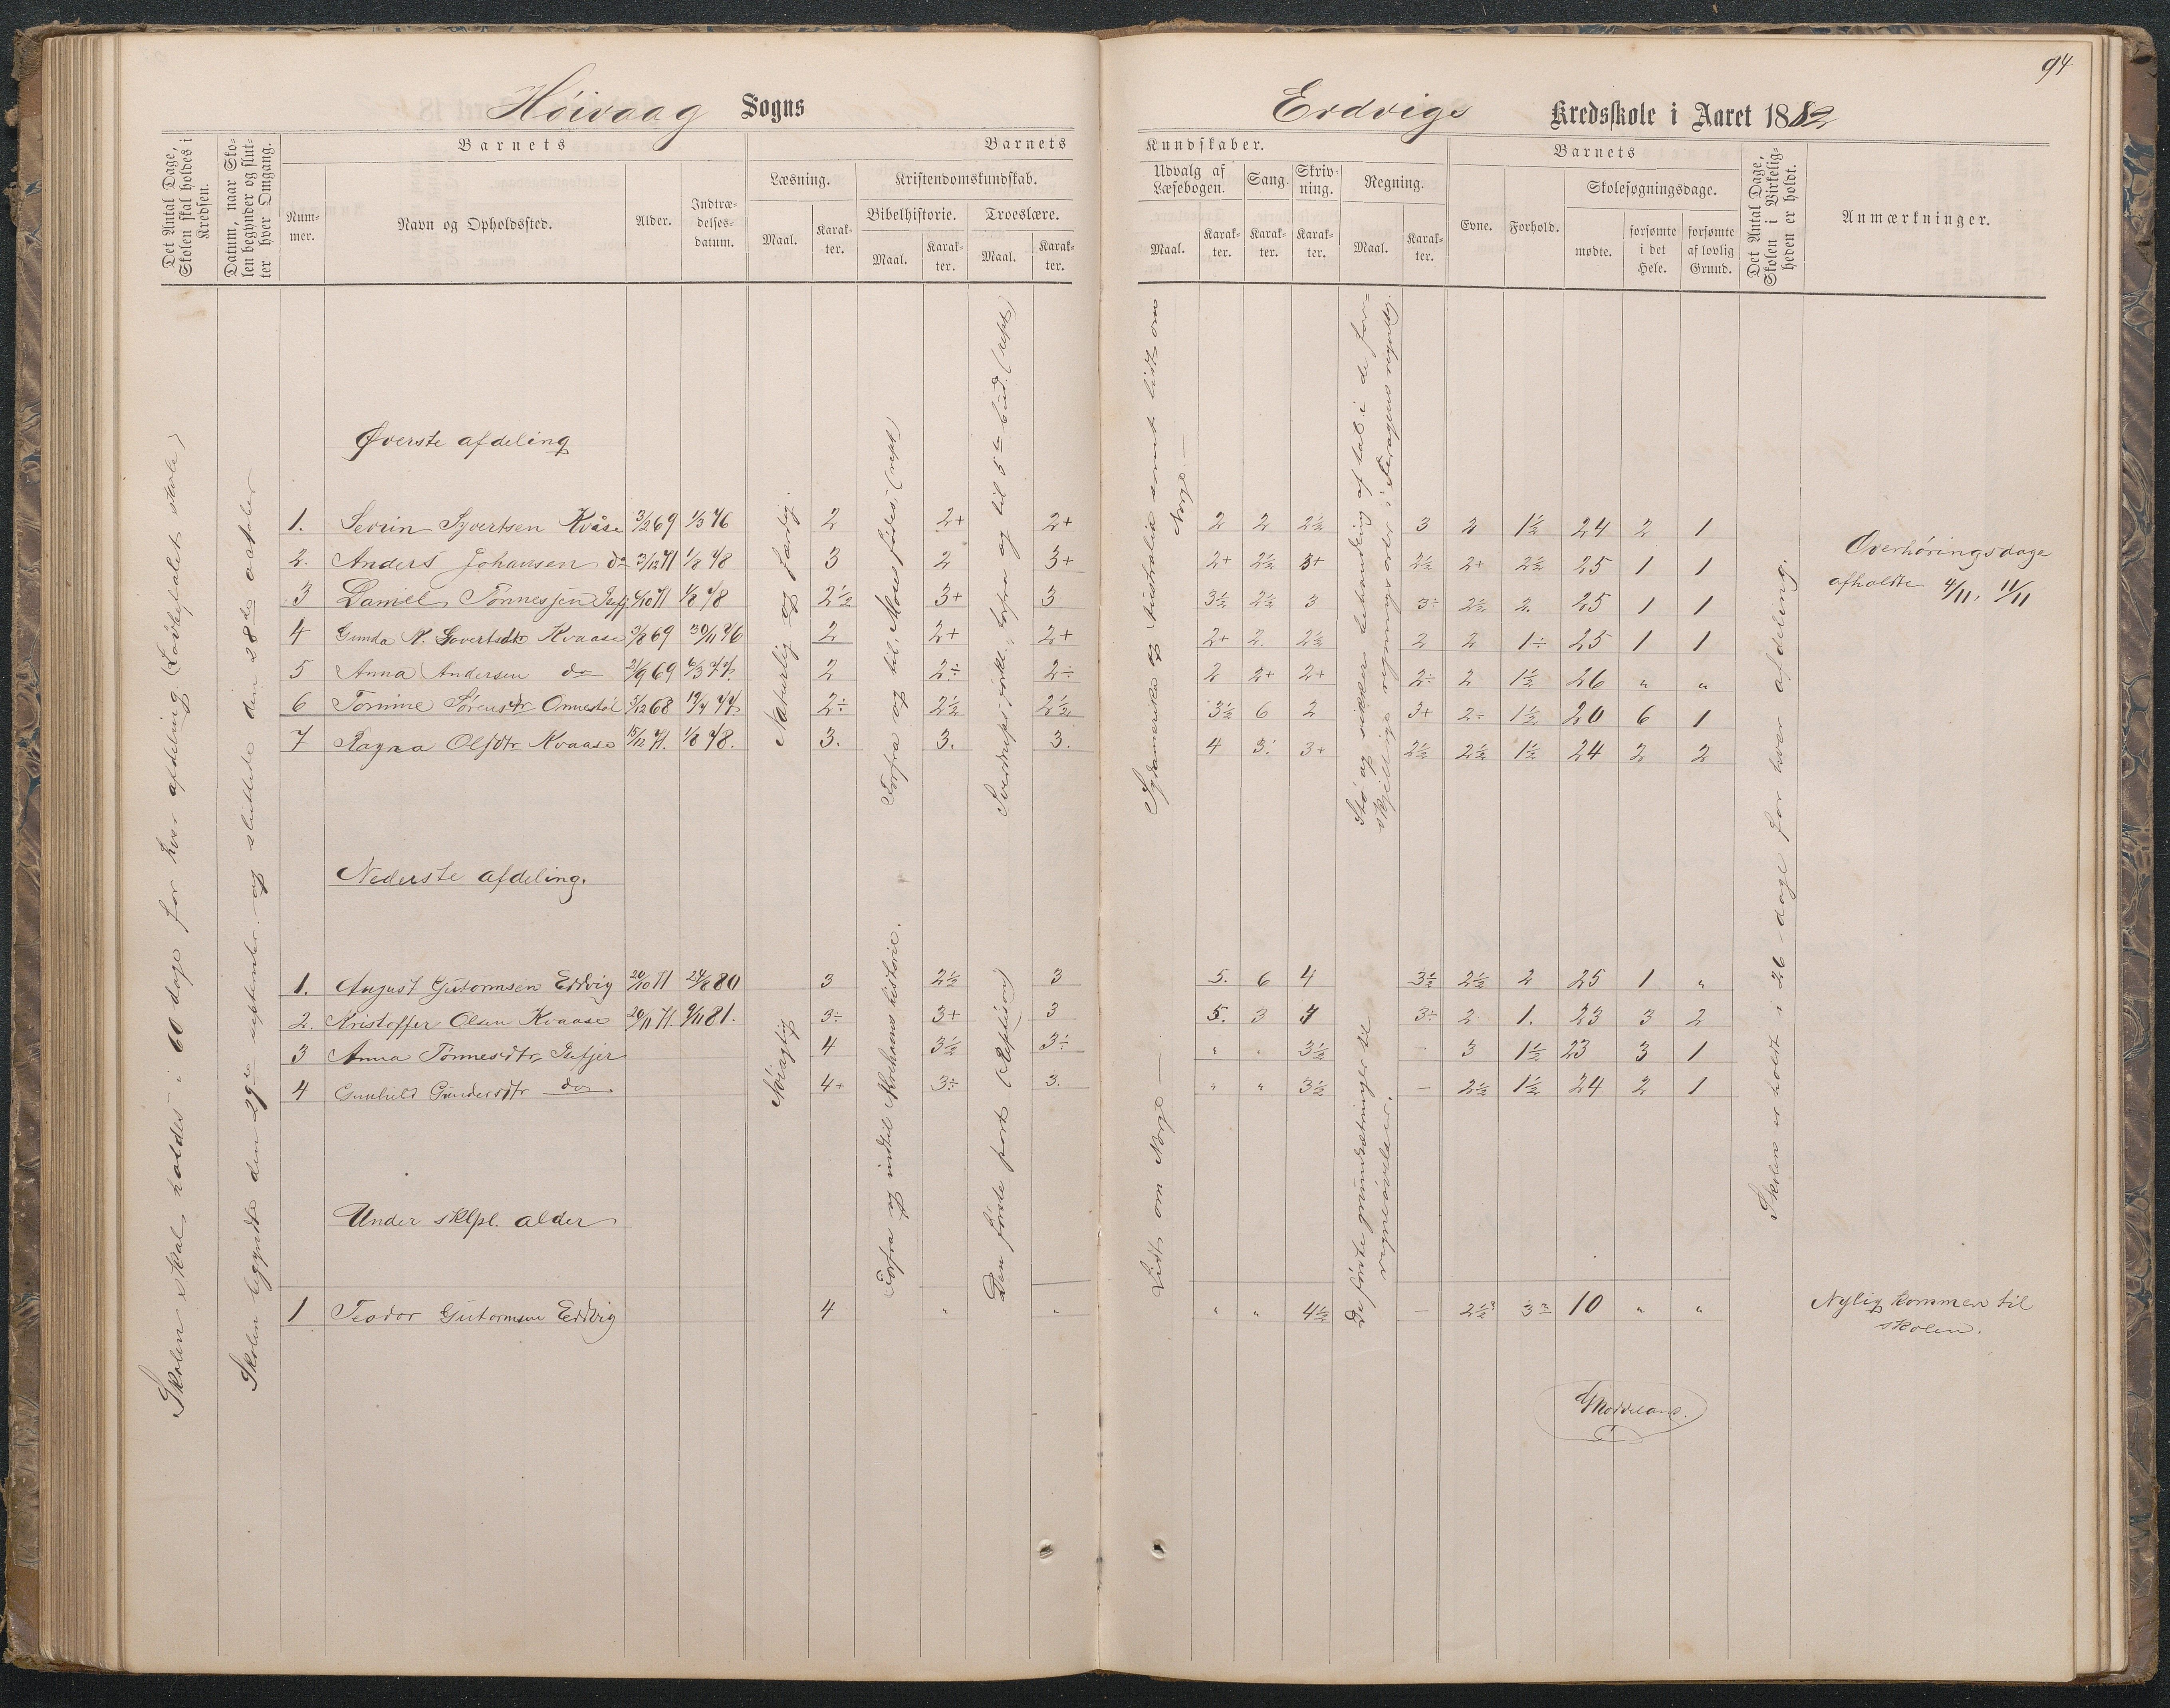 94
Høivaag Sogns
Erdvigs Kredsskole i Aaret 1882
Det Antal Dage, Skolen skal holdes i Kredsen.
Datum, naar Skolen begynder og slutter hver Omgang.
Barnets
Nummer.
Navn og Opholdssted.
Alder.
Indtrædelsesdatum.
Barnets
Læsning.
Maal.
Karakter.
Kristendomskundskab.
Bibelhistorie.
Maal.
Karakter.
Troeslære.
Maal.
Karakter.
Kundskaber.
Udvalg af Læsebogen.
Maal.
Karakter.
Sang.
Karakter.
Skrivning.
Karakter.
Regning.
Maal.
Karakter.
Barnets
Evne.
Forhold.
Skolesøgningsdage.
mødte.
forsømte i det Hele.
forsømte af lovlig Grund.
Det Antal Dage, Skolen i Virkeligheden er holdt.
Anmærkninger.
Skolen skal holdes i 60 dage for hver afdeling (Lovbefalet skole)
Skolen begyndte den 29de september og sluttede den 28de october
Øverste afdeling
Naturlig og færdig.
Forfra og til "Moses fødes" (rept)
Sverdrups forkl. forfra og til 5te bud. (rept)
Sydamerika og Australia samt lidt om Norge.
Stø og sikker behandling af tal i de forskjellige regningsarter i
Skolen er holdt i 26 dage for hver afdeling.
1. Sevrin Syvertsen Kvåse 3/2 69 1/3 76 2 2+ 2+ 2 2 2½ 3 2 1½ 24 2 1
2. Anders Johansen do 3/12 71 1/8 78 3 2 3+ 2+ 2½ 3+ 2½ 2+ 2½ 25 1 1
Overhøringsdage
afholdte 4/11, 11/11
3 Daniel Tønnessen 4/10 71 1/8 78 2½ 3+ 3 3½ 2½ 3 3÷ 2½ 2. 25 1 1
4 Gunda Kvaase 3/8 69 30/11 76 2 2+ 2+ 2+ 2. 2½ 2 2 1÷ 25 1 1
5 Anna Andersen do 21/9 69 6/3 77 2 2÷ 2÷ 2 2+ 2+ 2÷ 2 1½ 26 " "
6 Tomine Sørensdtr Omnestøl 5/12 68 19/4 77 2÷ 2½ 2½ 3½ 6 2 3+ 2÷ 1½ 20 6 1
7 Ragna Olsdtr Kvaase 15/12 71. 1/8 78. 3. 3. 3. 4 3. 3+ 2½ 2½ 1½ 24 2 2
Nederste afdeling.
Nøiagtig
Forfra og indtil Abrahams historie.
Den første part (Repetition)
Lidt om Norge
De første grundsætninger til regneøvelser.
1. August Gutormsen Erdvig 20/10 71 24/8 80 3 2½ 3 5. 6 4 3½ 2½ 2 25 1 "
2. Kristoffer Olsen Kvaase 20/11 71. 9/11 81. 3÷ 3+ 3 5. 3 4 3÷ 2 1. 23 3 2
3 Anna Tønnesdtr 4 3½ 3÷ " " 3½ — 3 1½ 23 3 1
4 Gunhild Gundersdtr do 4+ 3÷ 3. " " 3½ — 2½ 1½ 24 2 1
Under sklpl. alder
1 Teodor Gutormsen Erdvig 4 " " " " 4½ — 2½? 3? 10 " "
Nylig kommen til
skolen.